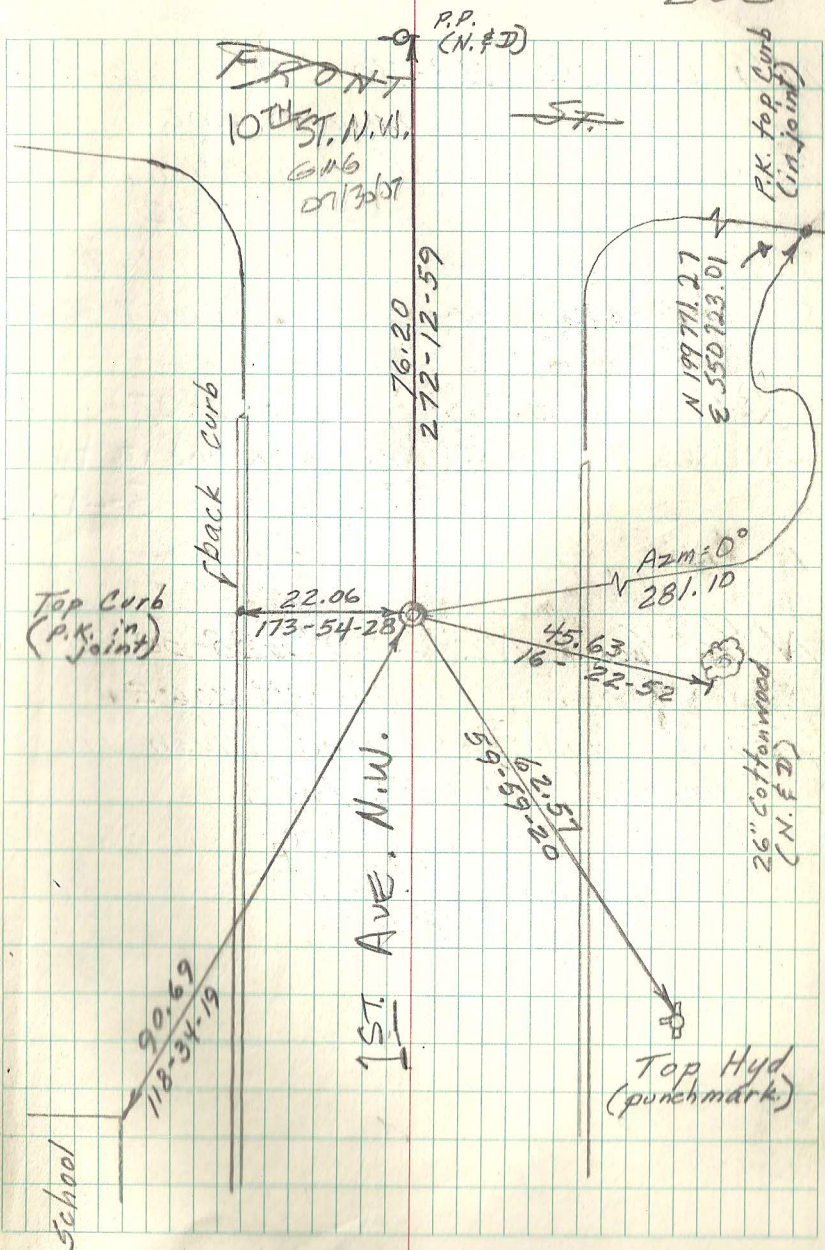 P.P.
(N. & D)
FRONT
ST.
10TH ST. N.W.
07/30/07
P.K. top Curb
(in joint)
N 199771.27
E 550723.01
76.20
272-12-59
back curb
Top Curb
(P.K. in
joint)
22.06
173-54-28
Azm = 0°
281.10
45.63
16-22-52
26" Cottonwood
(N. & D)
62.57
59-59-20
1ST. AVE. N.W.
90.69
118-34-19
School
Top Hyd
(punchmark)